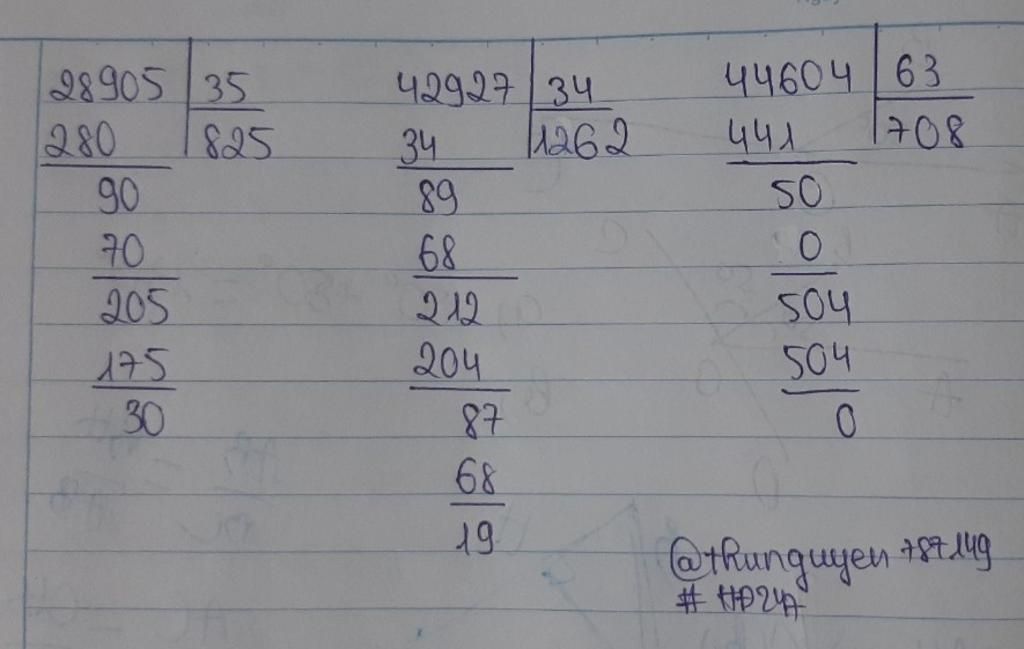 28905 35
280 825
90
70
205
175
30
42927 34
34 1262
89
68
212
204
87
68
19
44604 63
441 708
50
0
504
504
0
@thunguyen787149
# HD247